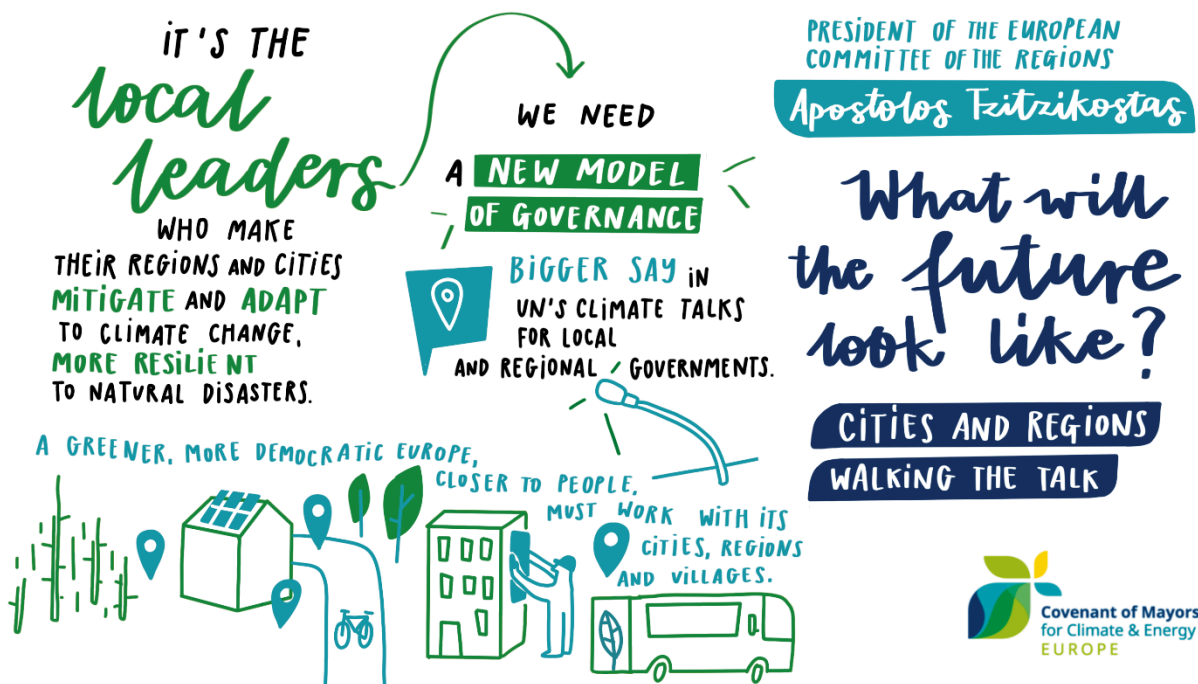 IT'S THE
local
leaders
WHO MAKE
THEIR REGIONS AND CITIES
MITIGATE AND ADAPT
TO CLIMATE CHANGE,
MORE RESILIENT
TO NATURAL DISASTERS.
WE NEED
A NEW MODEL
OF GOVERNANCE
BIGGER SAY IN
UN'S CLIMATE TALKS
FOR LOCAL
AND REGIONAL GOVERNMENTS.
A GREENER, MORE DEMOCRATIC EUROPE,
CLOSER TO PEOPLE,
MUST WORK WITH ITS
CITIES, REGIONS
AND VILLAGES.
PRESIDENT OF THE EUROPEAN
COMMITTEE OF THE REGIONS
Apostolos Tzitzikostas
What will
the future
look like?
CITIES AND REGIONS
WALKING THE TALK
Covenant of Mayors
for Climate & Energy
EUROPE